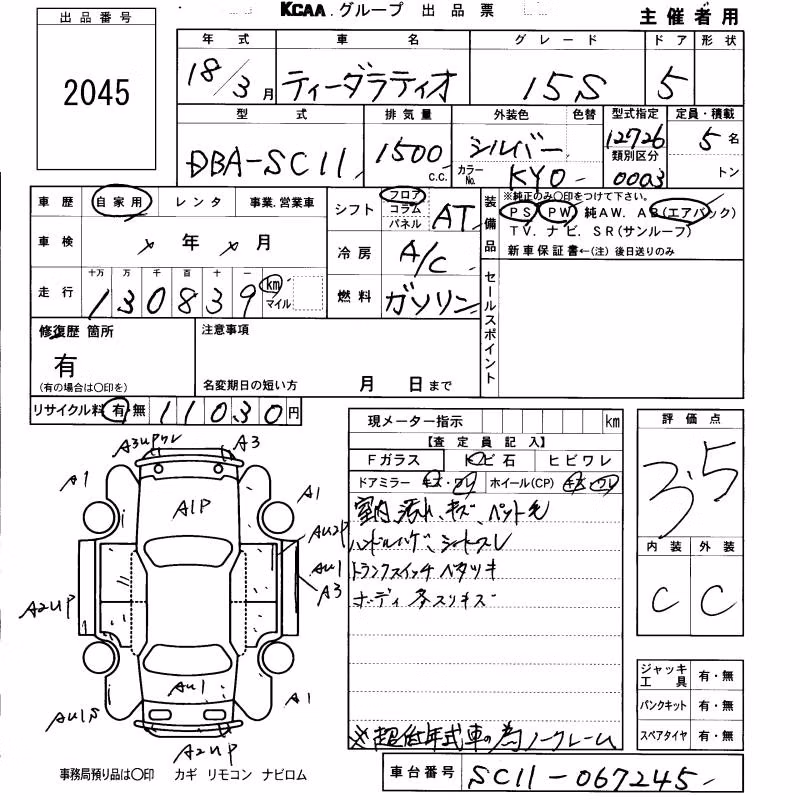 KCAA.グループ 出品票
主催者用
出品番号
2045
年式 車名 グレード ドア 形状
18/3月 ティーダラティオ 15S 5
型式 排気量 外装色 色替 型式指定 定員・積載
DBA-SC11 1500 c.c. シルバー カラーNo. KY0 12726 類別区分 0003 5名 トン
車歴 自家用 レンタ 事業.営業車
シフト フロア コラム パネル AT
装備品 ※純正のみ〇印をつけて下さい。
PS PW 純AW. AB(エアバック)
TV. ナビ. SR(サンルーフ)
新車保証書←(注) 後日送りのみ
車検 年 月
冷房 A/C
セールスポイント
走行 十万 万 千 百 十 一
130839 km マイル
燃料 ガソリン
修復歴 箇所
有
(有の場合は〇印を)
注意事項
名変期日の短い方 月 日まで
リサイクル料 有・無 11030円
現メーター指示 km
【査定員記入】
Fガラス トビ石 ヒビワレ
ドアミラー キズ・ワレ ホイール(CP) キズ・ワレ
室内汚れ、キズ、ペット毛
ハンドルハゲ、シートスレ
トランクスイッチベタツキ
ボディ多スリキズ
※超低年式車の為ノークレーム
評価点
3.5
内装 外装
C C
ジャッキ工具 有・無
パンクキット 有・無
スペアタイヤ 有・無
A3UPワレ A3
A1 A1
A1P
AU2P
AU1
A3
A2UP
AU1
AU1S A1
A2UP
事務局預り品は〇印 カギ リモコン ナビロム
車台番号 SC11-067245